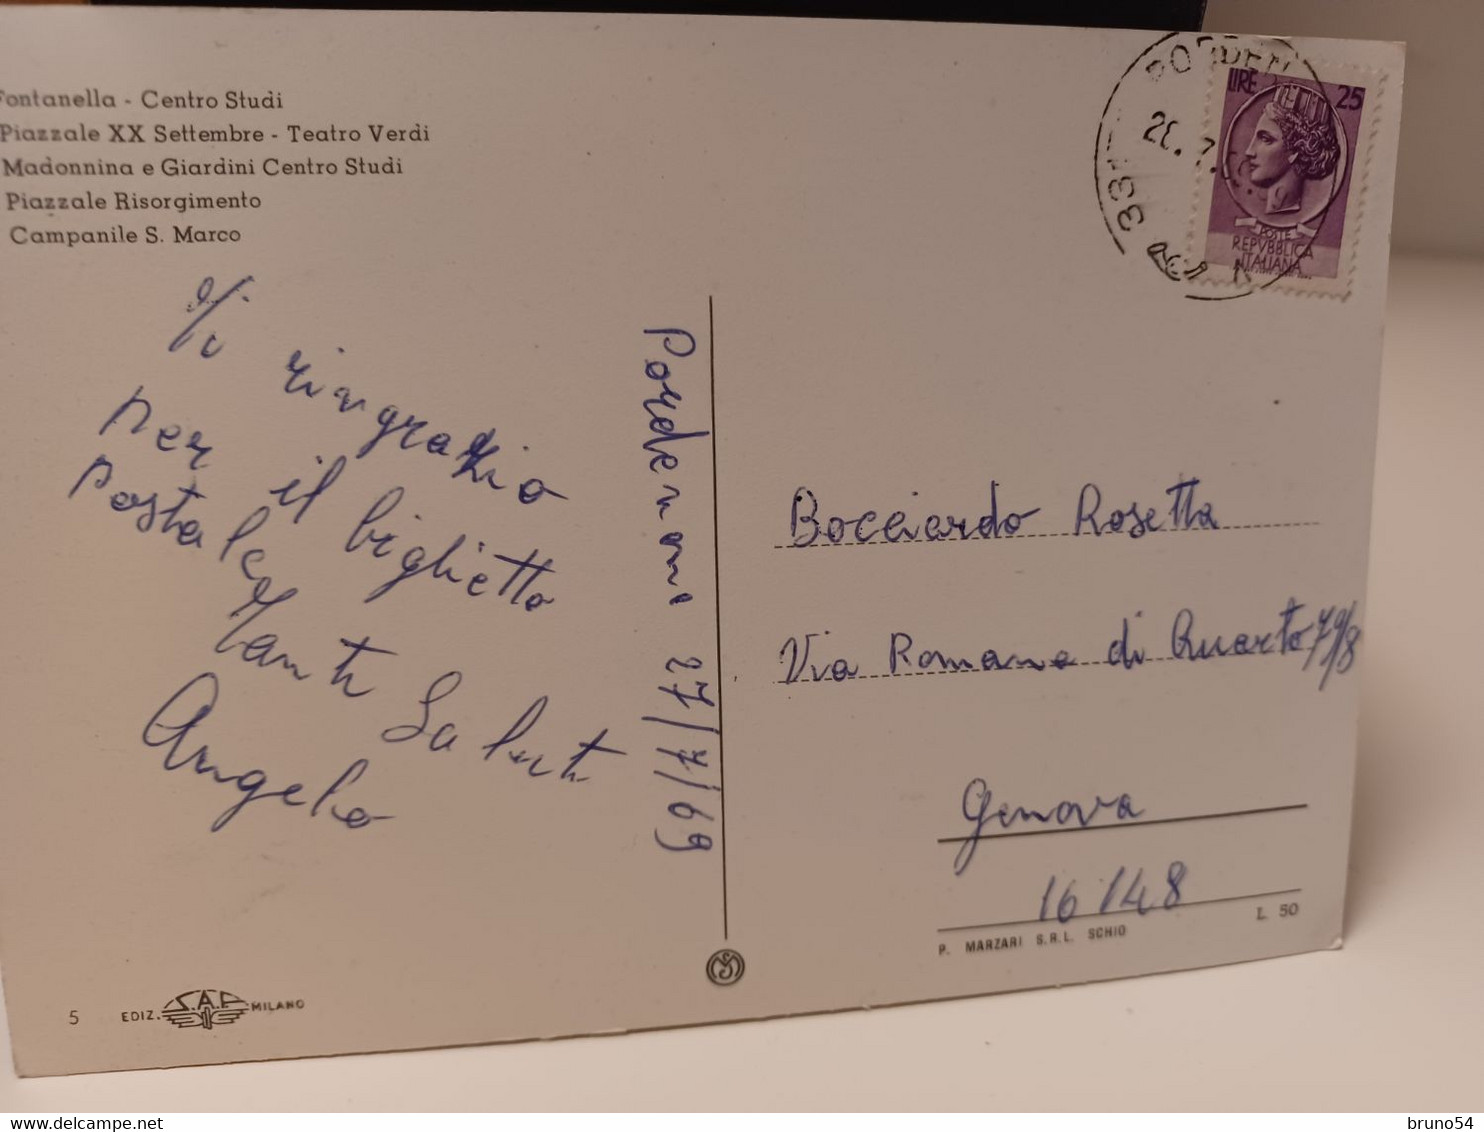 Fontanella - Centro Studi
Piazzale XX Settembre - Teatro Verdi
Madonnina e Giardini Centro Studi
Piazzale Risorgimento
Campanile S. Marco
Vi ringrazio
per il biglietto
postale
Tanti Saluti
Angelo
Pordenone 27/7/69
PORDEN
331
LIRE 25
POSTE
REPVBBLICA
ITALIANA
Bocciardo Rosetta
Via Romana di Quarto 79/8
Genova
16148
P. MARZARI S.R.L. SCHIO
L. 50
5 EDIZ. S.A.F. MILANO
delcampe.net
bruno54